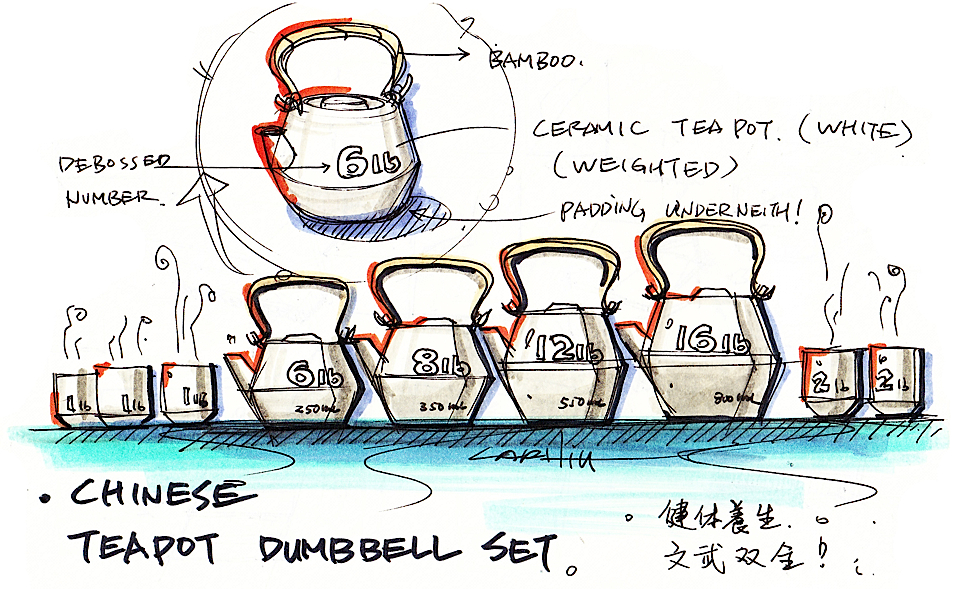 BAMBOO.
CERAMIC TEAPOT. (WHITE)
(WEIGHTED)
DEBOSSED
NUMBER.
6lb
PADDING UNDERNEITH!
1lb
1lb
1lb
6lb
250ml
8lb
350ml
12lb
550ml
16lb
800ml
2lb
2lb
• CHINESE
TEAPOT DUMBBELL SET.
健体養生.
文武双全!